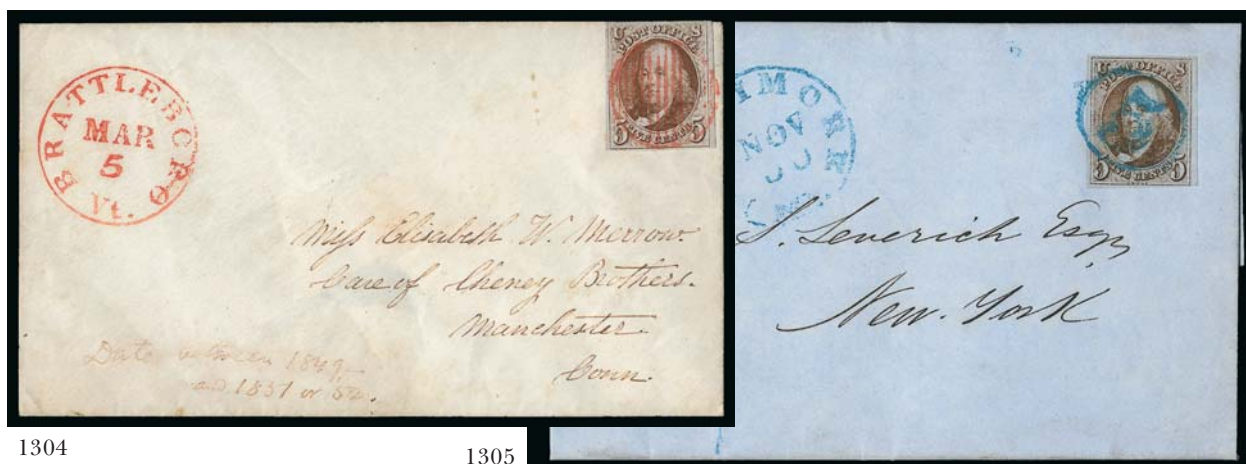 BRATTLEBORO
MAR
5
Vt.
U S
POST OFFICE
5 FIVE CENTS 5
Miss Elisabeth W. Merrow.
Care of Cheney Brothers.
Manchester.
Conn.
Date between 1849-
and 1851 or 52.
IMORE
NOV
U S
POST OFFICE
5 FIVE CENTS 5
S. Leverich Esqr
New-York
1304
1305